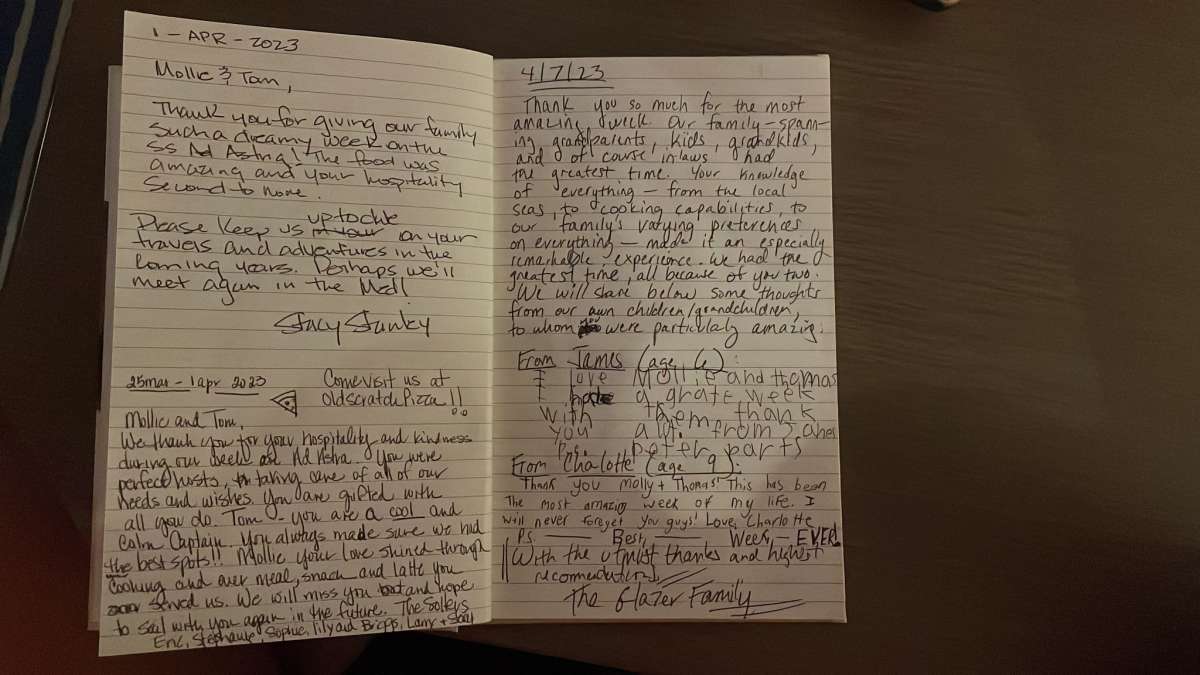 1 - APR - 2023
Mollie & Tom,
Thank you for giving our family
such a dreamy week on the
SS Ad Astra! The food was
amazing and your hospitality
second to none.
up to date
Please keep us on your
travels and adventures in the
coming years. Perhaps we'll
meet again in the Med!
Stacy Stunky
25 mar - 1 apr 2023
Come visit us at
old scratch Pizza!!
Mollie and Tom,
We thank you for your hospitality and kindness
during our week on Ad Astra. You were
perfect hosts, taking care of all of our
needs and wishes. You are gifted with
all you do. Tom - you are a cool and
calm Captain. You always made sure we had
the best spots!! Mollie your love shined through
cooking and over meal, snack and latte you
served us. We will miss you and hope
to sail with you again in the future. The
Eric, Stephanie, Sophie, Lily and Briggs, Larry +
4/7/23
Thank you so much for the most
amazing week. Our family - spann-
ing grandparents, kids, grandkids,
and of course inlaws had
the greatest time. Your knowledge
of everything - from the local
seas, to cooking capabilities, to
our family's varying preferences
on everything - made it an especially
remarkable experience. We had the
greatest time, all because of you two.
We will share below some thoughts
from our own children/grandchildren,
to whom were particularly amazing:
From James (age 6):
I love Mollie and thomas
I had a grate week
with them thank
you all. from James
P.S. peter parts
From Charlotte (age 9):
Thank you Molly + Thomas! This has been
The most amazing week of my life. I
will never foreget you guys! Love, Charlotte
Ps. Best, Week, - EVER!
With the utmost thanks and highest
recomendations,
The Glazer Family